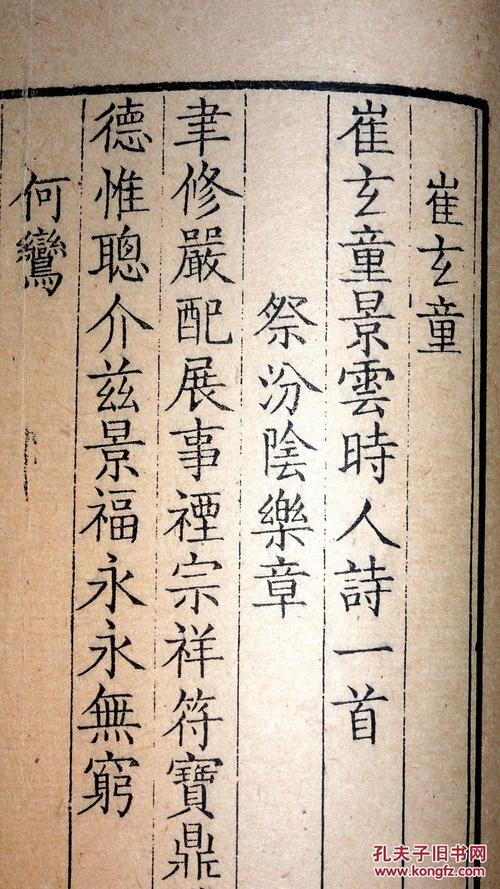 崔玄童
崔玄童景雲時人詩一首
祭汾陰樂章
聿修嚴配展事禋宗祥符寶鼎
德惟聰介茲景福永永無窮
何鸞
孔夫子旧书网
www.kongfz.com